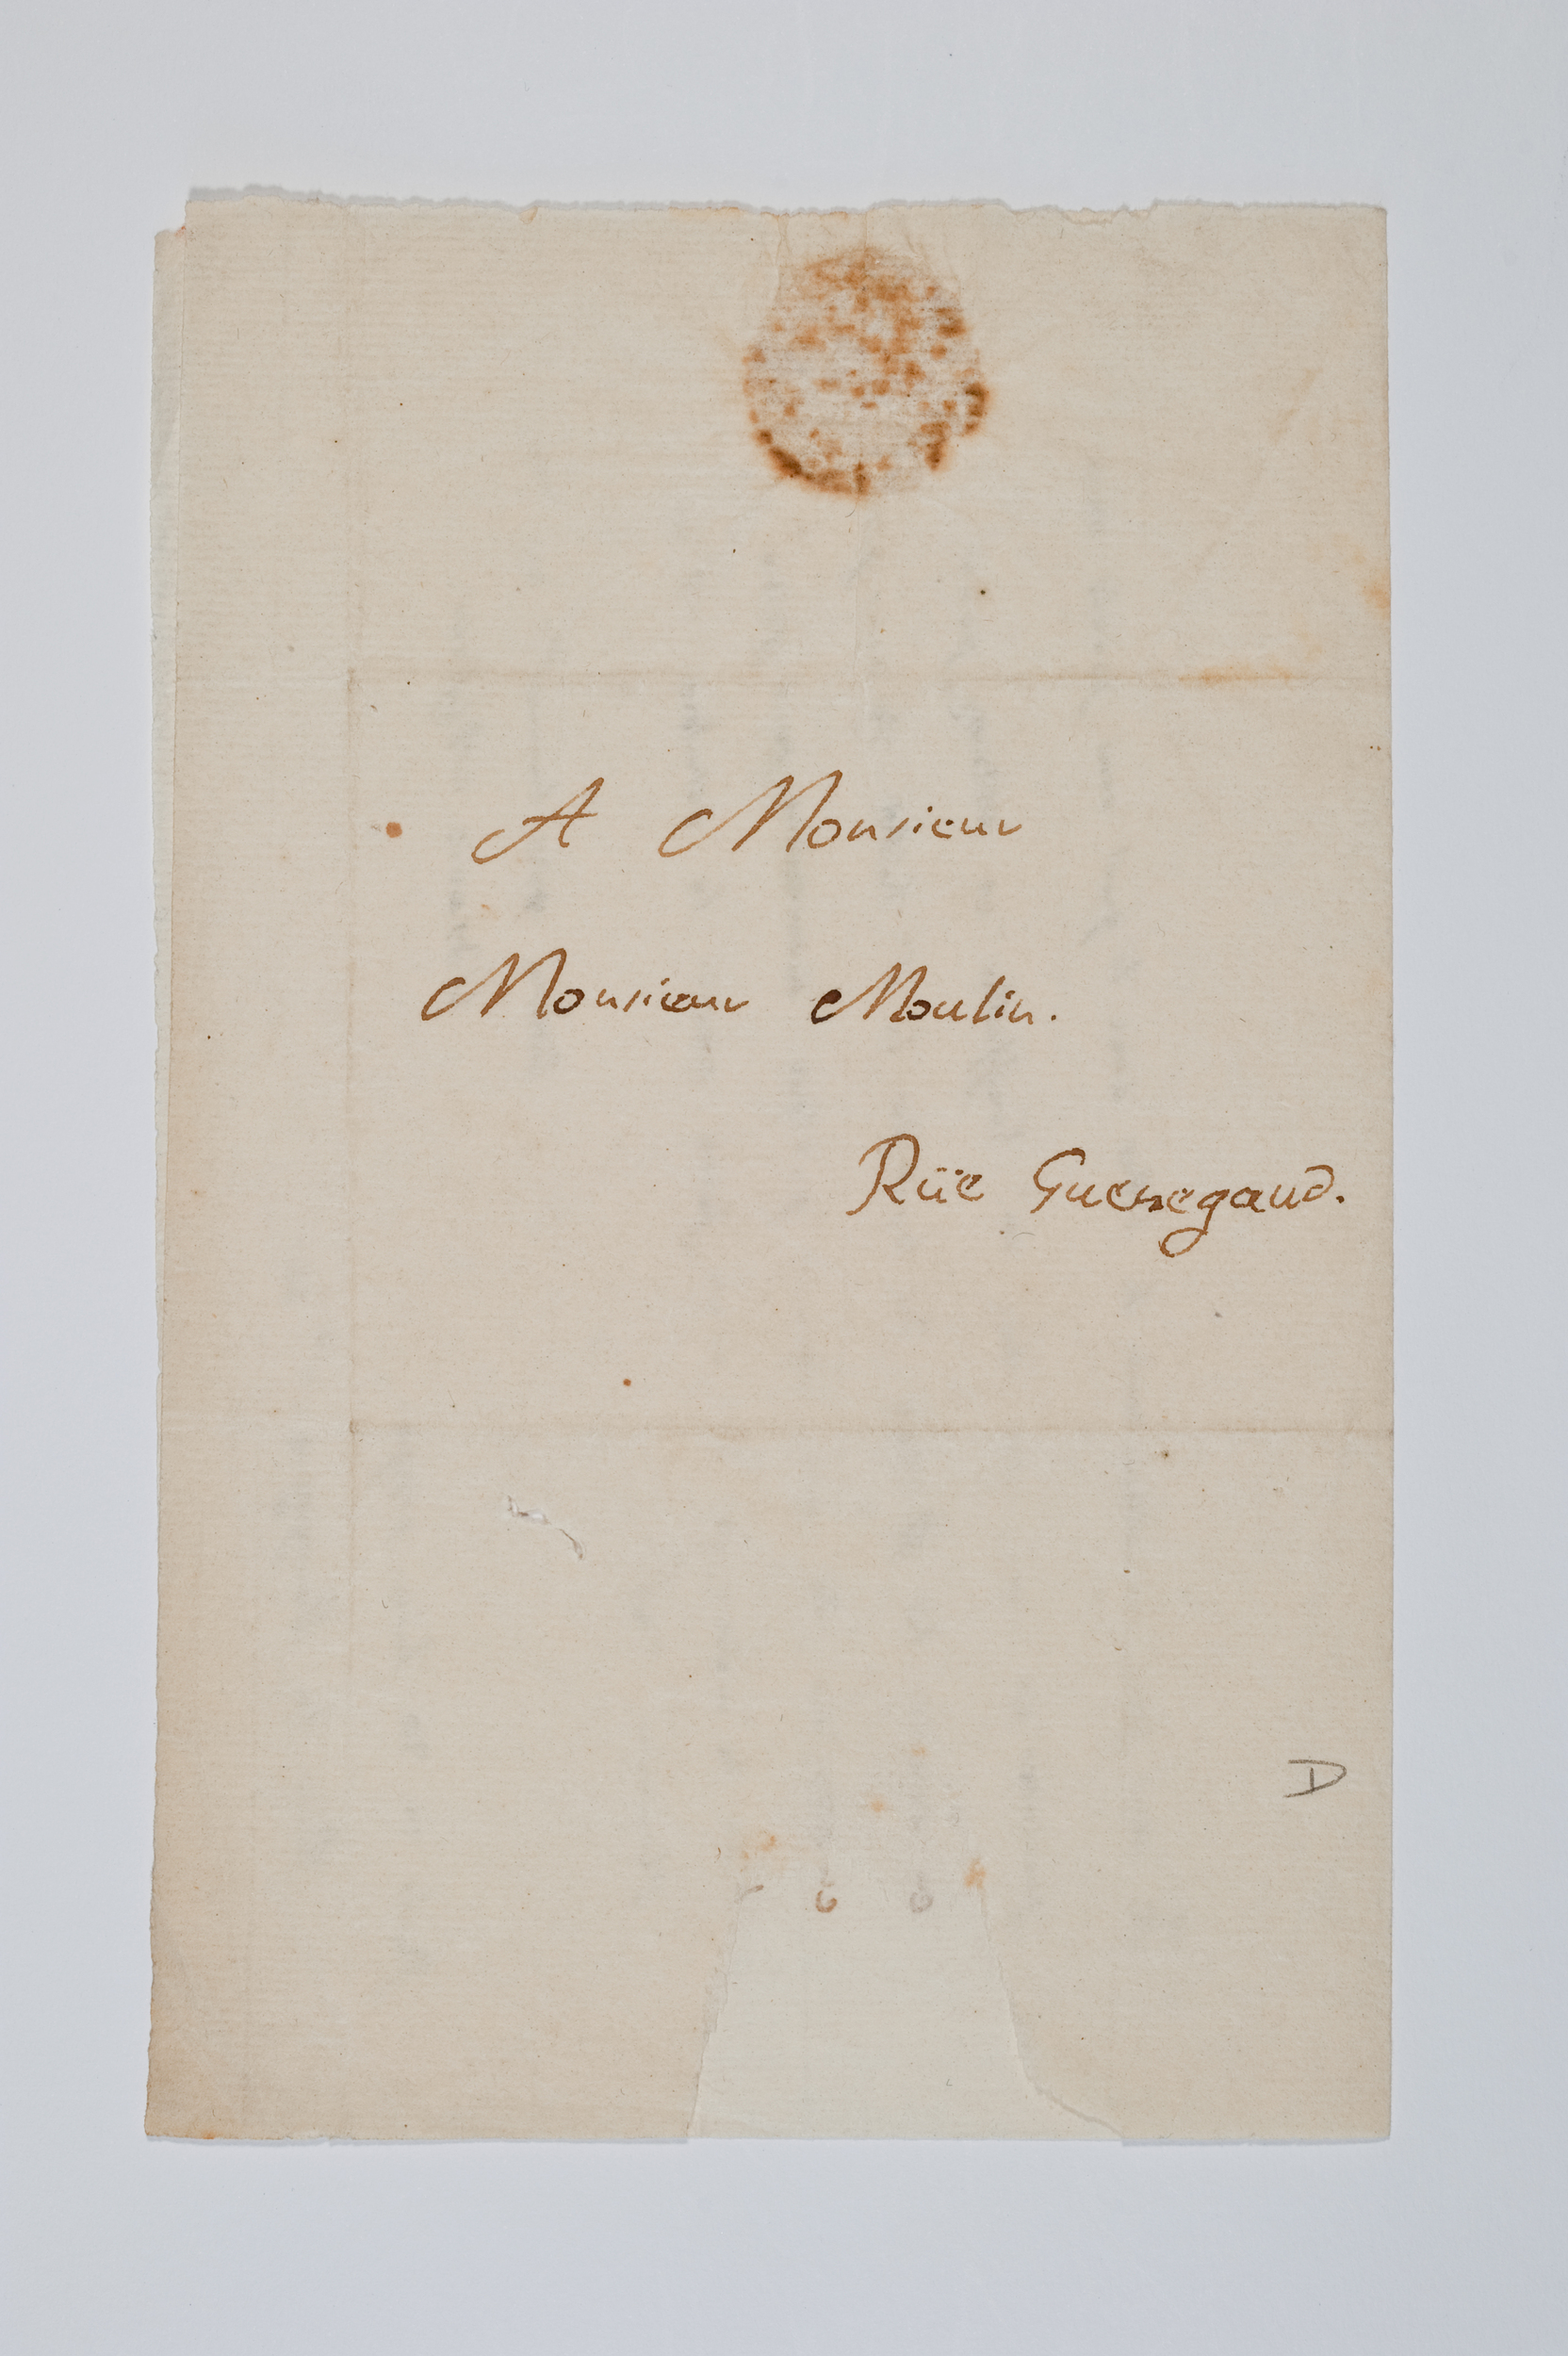 A Monsieur
Monsieur Moulin.
Rüe Guenegaud.
D